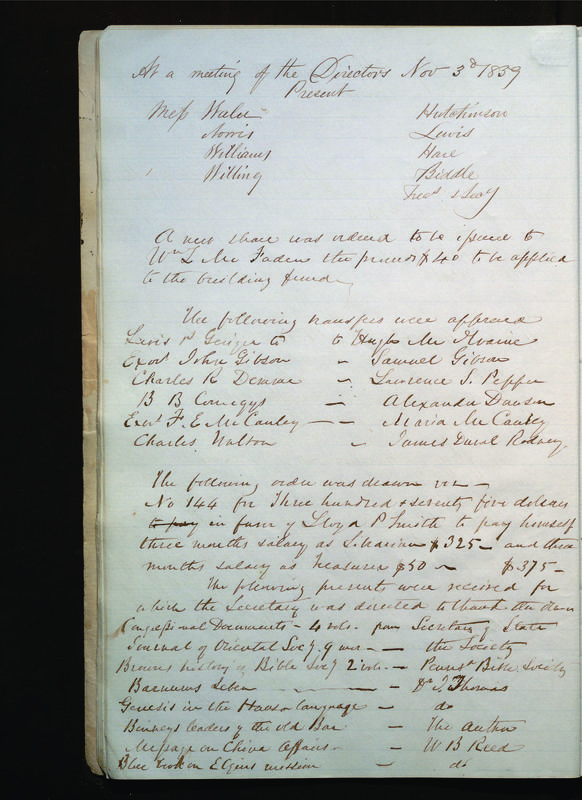 At a meeting of the Directors Nov 3d 1839
Present
Mess Waln Hutchinson
Norris Lewis
Williams Hare
Willing Biddle
Treas & Secy
A new share was ordered to be issued to
Wm L Mc Faden the proceeds $40 to be applied
to the building fund
The following transfers were approved
Lewis P Geiger to to Hugh Mc Ilvaine
Exor John Gibson – Samuel Gibson
Charles R Demme – Lawrence S. Pepper
B B Comegys – Alexander
Exor F. E. McCauley – Maria McCauley
Charles – James Duval Rodney
The following order was drawn viz –
No 144 for Three hundred & seventy five dollars
to pay in favor of Lloyd P Smith to pay himself
three months salary as Librarian $325 – and three
months salary as Treasurer $50 – $375 –
The following presents were received for
which the Secretary was directed to thank the donors
Congressional Documents – 4 vols. from Secretary of State
Journal of Oriental Socy. – the Society
Browns history of Bible Socy 2 vols. – Pennsa Bible Society
– Dr J. Thomas
Genesis in the language – do
Binneys leaders of the old Bar – The author
Message on China Affairs – W B Reed
Blue book on Elgins mission – do